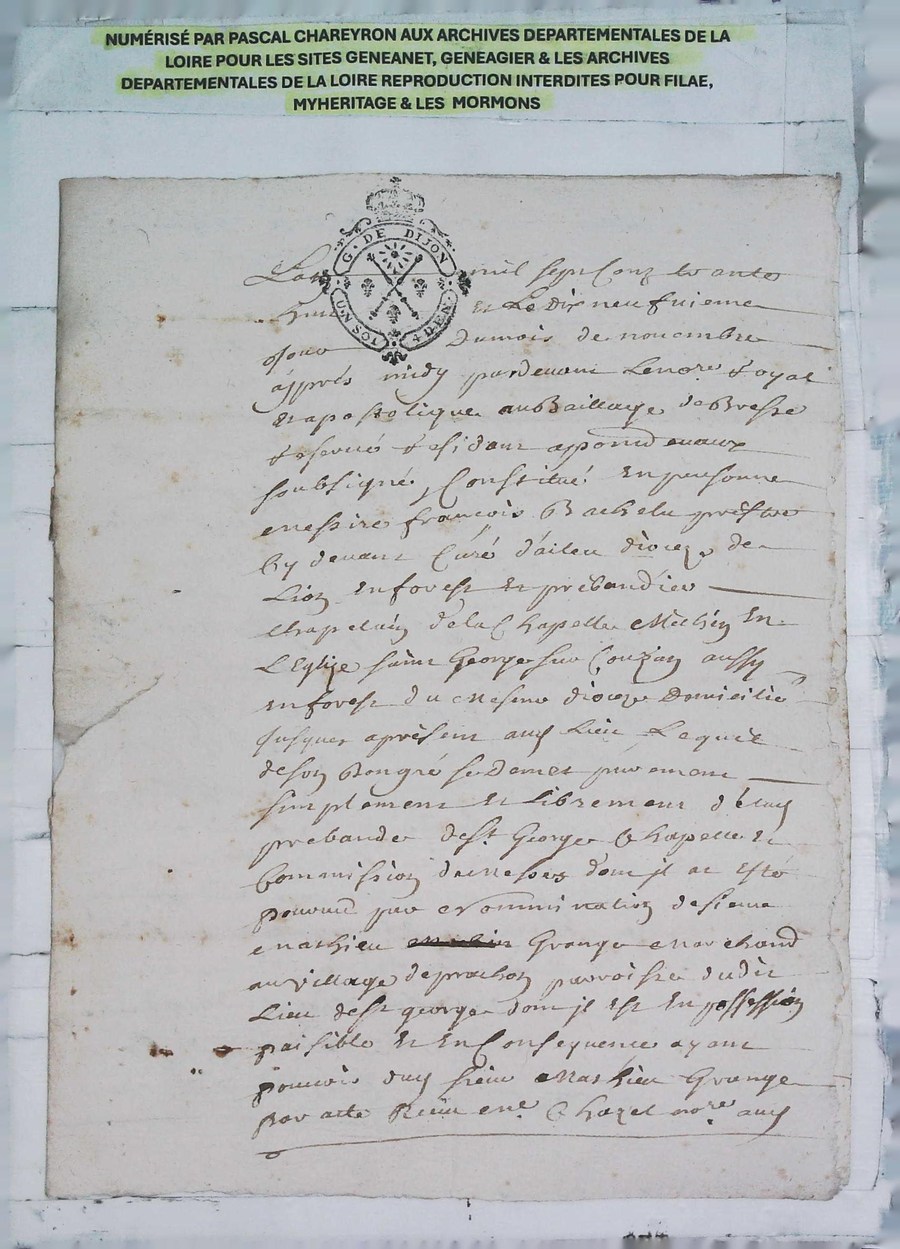 NUMÉRISÉ PAR PASCAL CHAREYRON AUX ARCHIVES DEPARTEMENTALES DE LA
LOIRE POUR LES SITES GENEANET, GENEAGIER & LES ARCHIVES
DEPARTEMENTALES DE LA LOIRE REPRODUCTION INTERDITES POUR FILAE,
MYHERITAGE & LES MORMONS
G. DE DIJON
UN SOL 4 DEN.
Lan mil sept Cenz trante
huit et Le Dix neufuieme
Jour Dumois de nouembre
apprés midy pardeuant Lenore Royal
Et apostolique au Bailliage de Bresse
reserué residant appond
soubsigné, Constitué En personne
messire françois Bachelu prestre
Cy deuant Curé d'aileu dioceze de
Lion En forest Et prébandier
Chapelain dela Chapelle Mathin En
LEglize saint George sur Couzan aussy
En forest du mesme dioceze Domicilié
Jusques aprèsent aud Lieu Lequel
deson Bongré se Demet purement
simplement Et Librement d'Elad
prebande de st George Chapelle Et
Commission de Messes dont jl a Esté
pourvu par Nommination de sieur
Mathieu Grange Marchand
au village de prachon parroisse dudit
Lieu de st george dont jl Est En possession
paisible Et En Consequence ayant
pouvoir dud sieur Mathieu Grange
par acte Reçu me Chazel nore aud